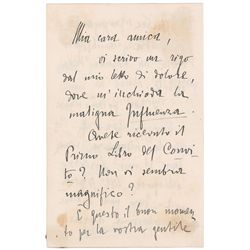 Mia cara amica,
vi scrivo un rigo
dal mio letto di dolore,
dove m'inchioda la
maligna Influenza.
Avete ricevuto il
Primo Libro del Convi-
to? Non vi sembra
magnifico?
È questo il buon momen-
to per la vostra gentile